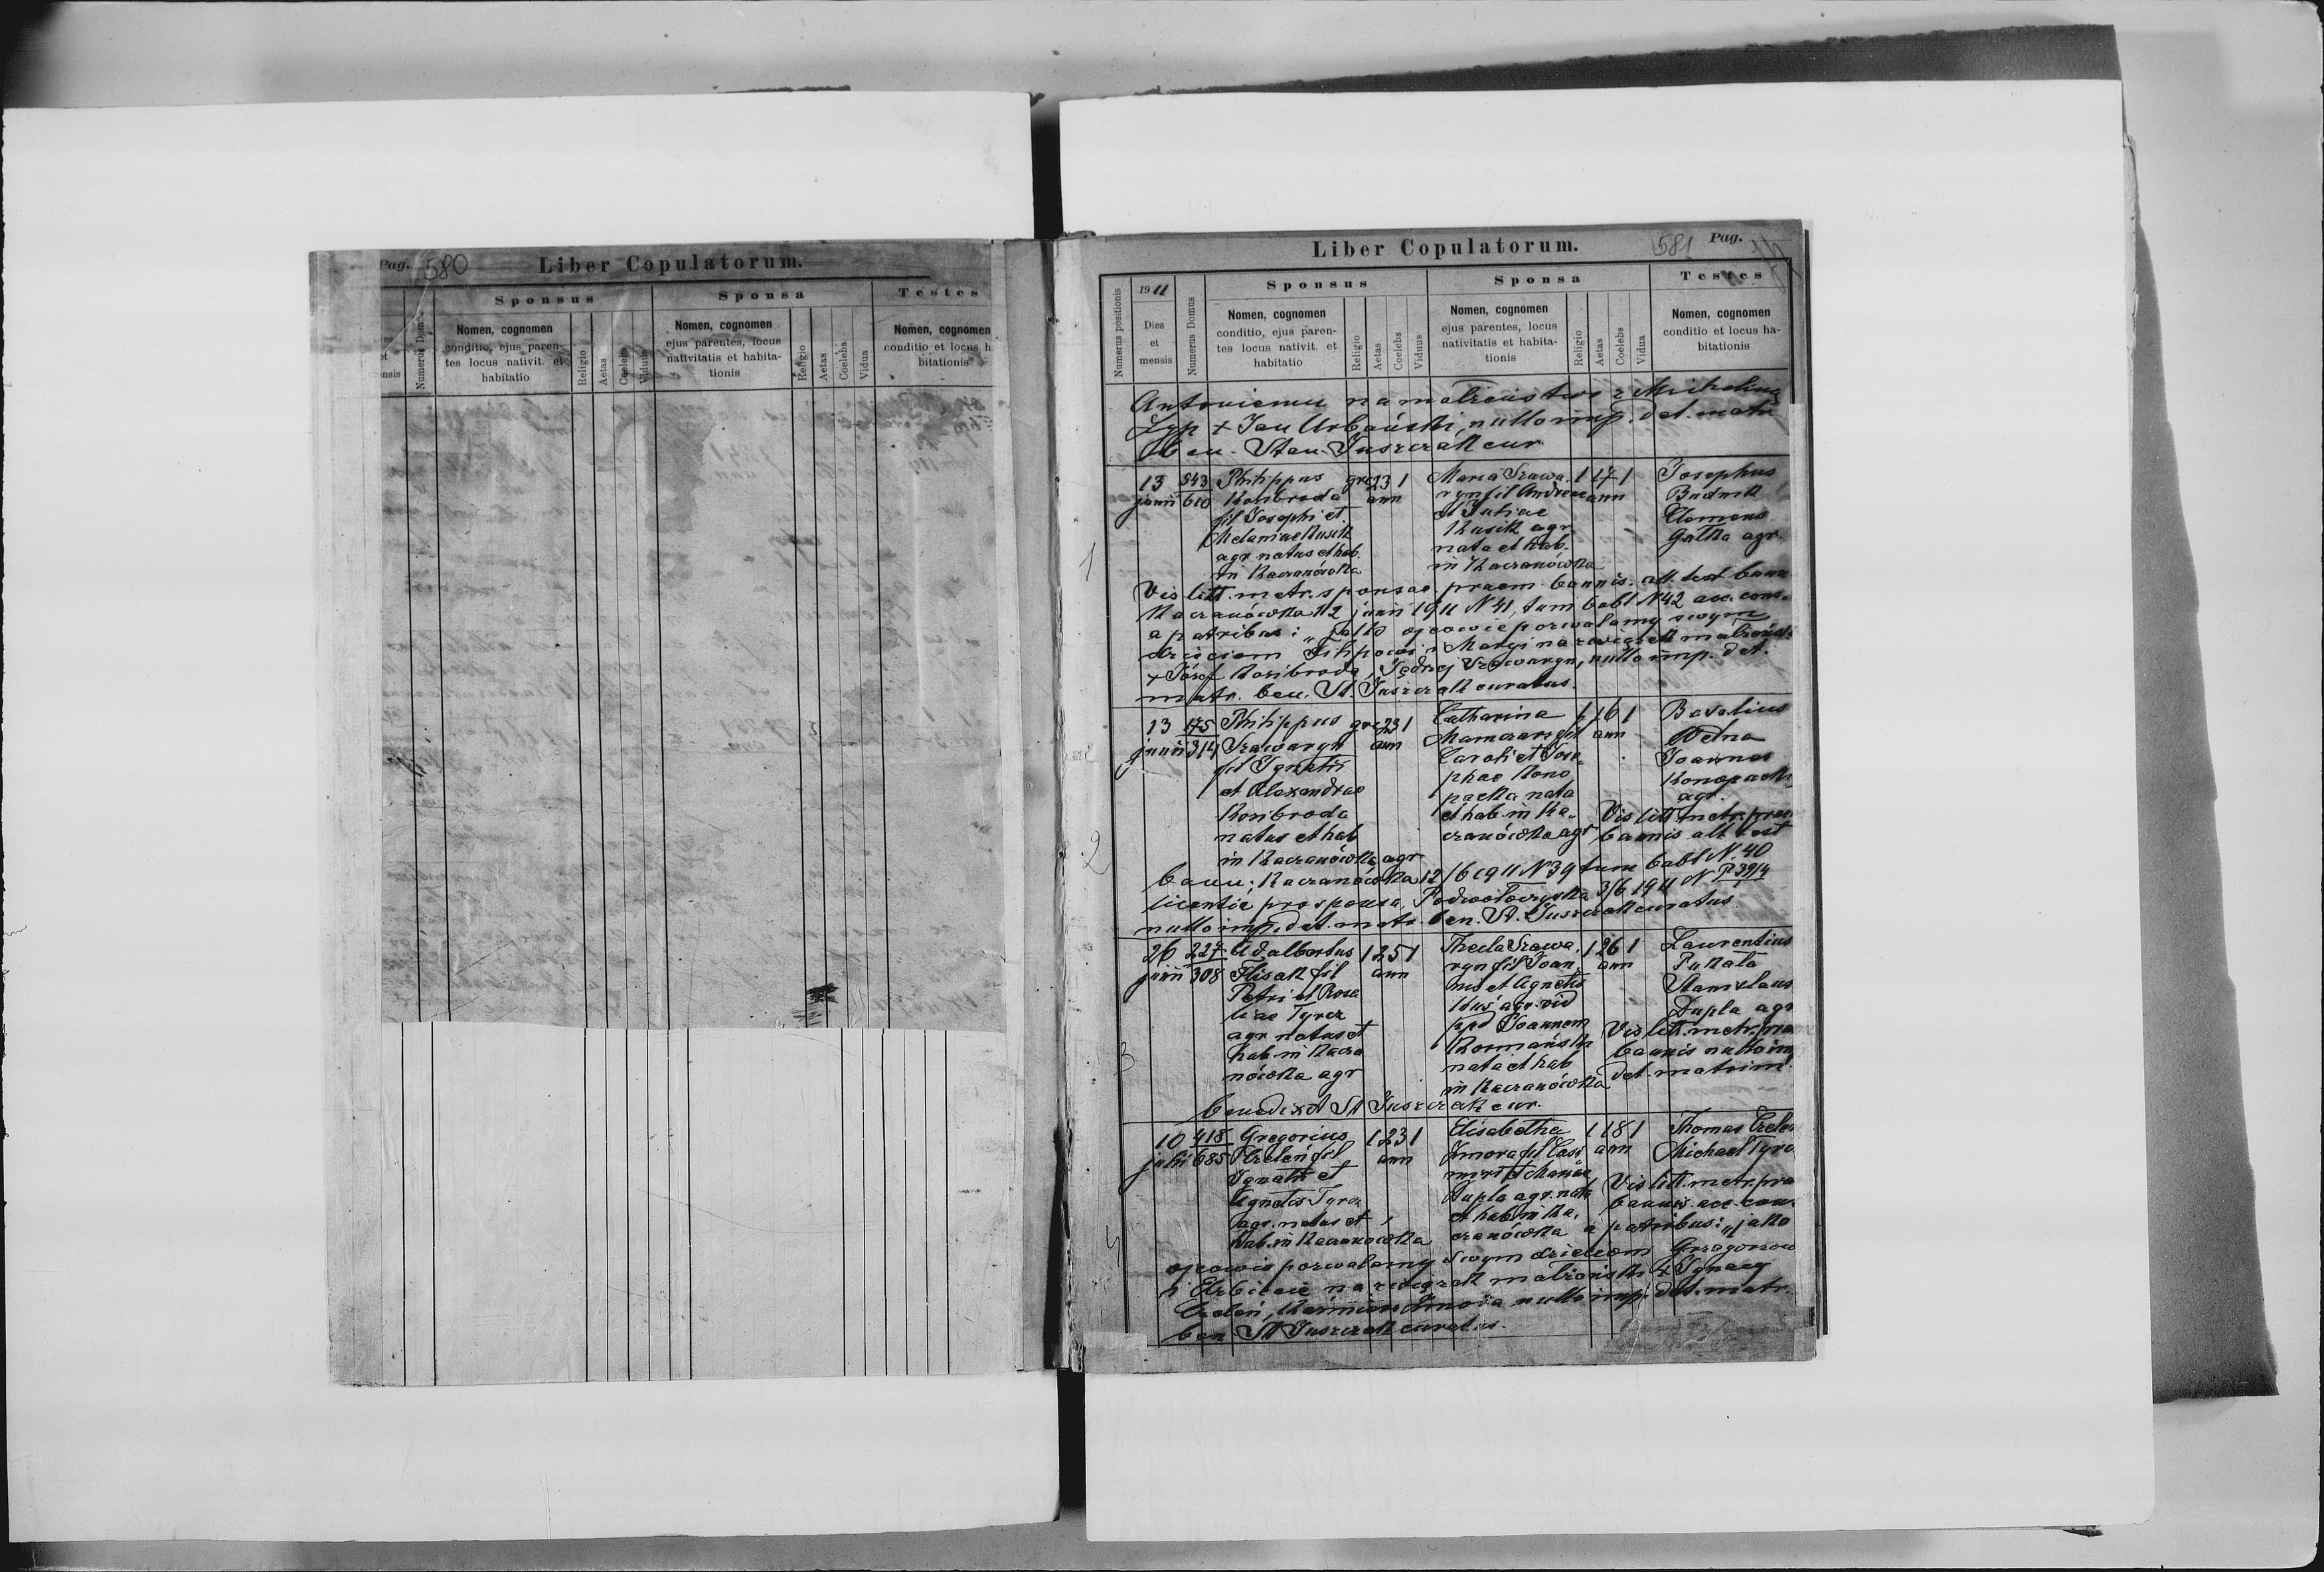 Pag. 580
Liber Copulatorum.
Sponsus
Sponsa
Testes
Numerus Domus
Nomen, cognomen
conditio, ejus paren-
tes locus nativit. et
habitatio
Religio
Aetas
Coelebs
Viduus
Nomen, cognomen
ejus parentes, locus
nativitatis et habita-
tionis
Religio
Aetas
Coelebs
Vidua
Nomen, cognomen
conditio et locus h
bitationis
Liber Copulatorum.
581
Pag.
Numerus positionis
1911
Dies
et
mensis
Numerus Domus
Sponsus
Nomen, cognomen
conditio, ejus paren-
tes locus nativit. et
habitatio
Religio
Aetas
Coelebs
Viduus
Sponsa
Nomen, cognomen
ejus parentes, locus
nativitatis et habita-
tionis
Religio
Aetas
Coelebs
Vidua
Testes
Nomen, cognomen
conditio et locus ha-
bitationis
Antoniemu na małżeństwo z Michaliną
Zyp + Jan Urbański, nullo imp. det. matr
ben. Stan. Juszczak cur
1
13
junii
543
610
Philippus
Kosibroda
fil Josephi et
Melaniae Kusik
agr natus et hab.
in Kaczanówka
grc
23
ann
1
Maria Szawa
ryn fil Andreae
et Juliae
Kusik agr
nata et hab.
in Kaczanówka
1
17
ann
1
Josephus
Budnik
Clemens
Gałka agr.
Vis litt. metr. sponsae praem. bannis. att. test bann
Kaczanówka 12 junii 1911 N 41, tum babt. N 42 acc. cons.
a patribus: „Jako ojcowie pozwalamy swym
dzieciom Filipowi i Maryi na związek małżeński
+ Józef Kosibroda, Jędrzej Szawaryn, nullo imp. det.
matr. ben. St. Juszczak curatus.
2
13
junii
175
314
Philippus
Szawaryn
fil Ignatii
et Alexandrae
Kosibroda
natus et hab
in Kaczanówka agr
grc
23
ann
1
Catharina
Mamczarz fil
Caroli et Jose
phae Kono
packa nata
et hab. in Ka
czanówka agr
1
16
ann
1
Basilius
Wełna
Joannes
Konopacki
agr.
Vis litt metr. prae
bannis att test
bann; Kaczanówka 12/6 1911 N 39 tum babt N. 40
licentia pro sponsa, Podwołoczyska 3/6 1911 N
nullo imp. det. matr. ben. St. Juszczak curatus
3
26
junii
227
308
Adalbertus
Flisak fil
Petri et Rosa
liae Tyrcz
agr natus et
hab in Kacza
nówka agr
1
25
ann
1
Thecla Szawa
ryn fil Joan
nis et Agnetis
Kuś agr. vid
ppd Joannem
nata et hab
in Kaczanówka
1
26
ann
1
Laurentius
Pukała
Stanislaus
Dupla agr
Vis litt. metr. prae
bannis nullo im
det. matrim.
benedixit St Juszczak cur.
10
julii
418
685
Gregorius
fil
Ignatii et
Agnetis Tyrcz
agr. natus et
hab. in Kaczanówka
1
23
ann
1
Elisabetha
fil Casi
miri et Mariae
Dupla agr. nata
et hab in Ka
czanówka
1
18
ann
1
Thomas
Michael
Vis litt. metr. pra
bannis acc. con.
a patribus: „jako
ojcowie pozwalamy swym dzieciom Grzegorzow
i Elżbiecie na związek małżeński + Ignacy
nullo imp. det. matr.
ben. St Juszczak curatus.